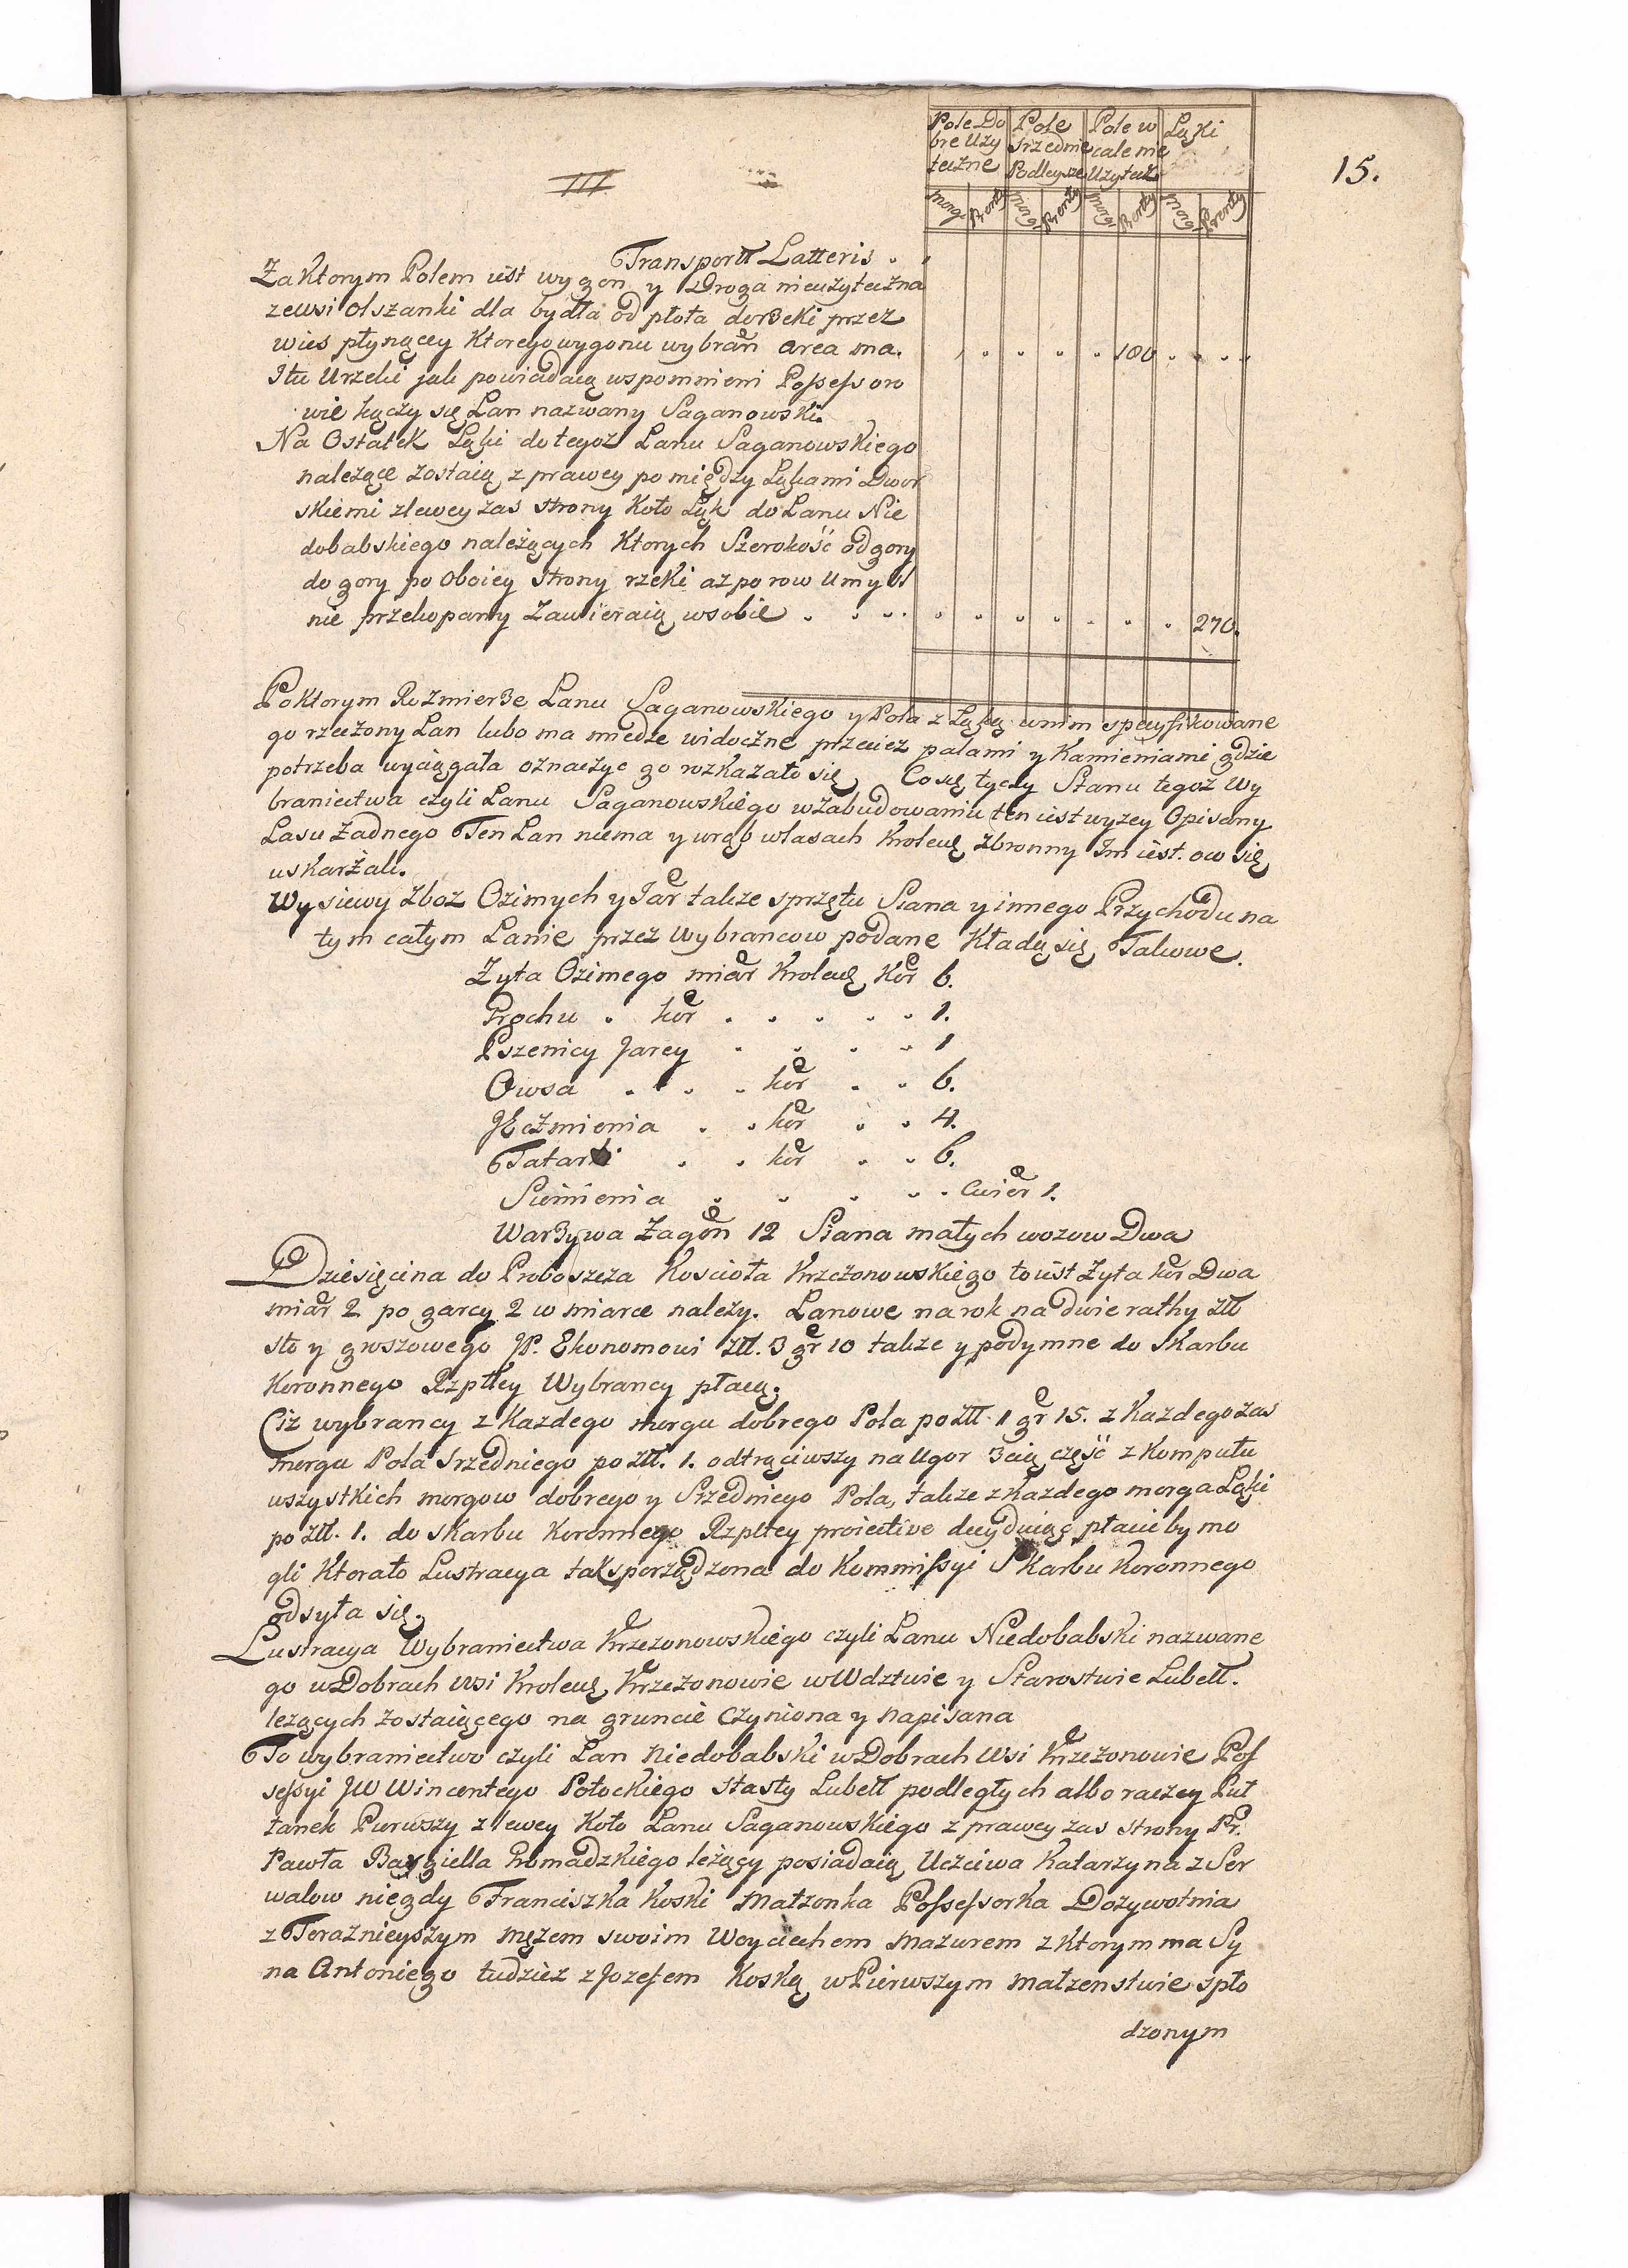 15.
III
Pole Do Pole Pole w Łąki
bre Uzy srzednie cale nie
teczne Podleysze Uzytecz
morgi Pręty morgi Pręty morgi Pręty morgi Pręty
Transportt Latteris . .
Za Ktorym Polem iest wygon y Droga nieużyteczna
ze wsi Olszanki dla bydła od płota do rzeki przez
wies płynącey Ktorego wygonu wybran area ma. 180
I tu Urzeki jak powiadaią wspomnieni Possessoro
wie łączy się Łan nazwany Saganowski.
Na Ostatek Łąki do tegoz Łanu Saganowskiego
należące zostaią z prawey pomiędzy Łąkami Dwor
skiemi z lewey zas strony Koło Łąk do Łanu Nie
dobabskiego należących Ktorych Szerokość od gory
do gory po Oboiey strony rzeki az po row Umyśl
nie przekopany Zawieraią w sobie . . . . 270.
Po Ktorym Rozmierze Łanu Saganowskiego y Pola z Łąką w nim specyfikowane
go rzeczony Łan lubo ma miedze widoczne przeciez palami y Kamieniami gdzie
potrzeba wyciągała oznaczyc go rozkazało się, Co się tyczy Stanu tegoz Wy
braniectwa czyli Łanu Saganowskiego w Zabudowaniu ten iest wyzey Opisany
Lasu Zadnego Ten Łan niema y wrąb w lasach Krolew: Zbronny Im iest. o co się
uskarżali.
Wysiewy Zboz Ozimych y Jar: takze sprzętu Siana y innego Przychodu na
tym całym Łanie przez Wybrancow podane Kładą się Takowe.
Zyta Ozimego miar Krolew: Kor: 6.
Grochu . kor: . . . . . 1.
Pszenicy Jarey . . . . 1
Owsa . . . kor: . . 6.
Jęczmienia . . kor: . . 4.
Tatarki . . kor: . . 6.
Siemienia . . . . . Cwier: 1.
Warzywa Zagon: 12 Siana małych wozow Dwa
Dziesięcina do Proboszcza Kosciola Krzczonowskiego to iest Zyta kor: Dwa
miar 2 po garcy 2 w miarce nalezy. Łanowe na rok na dwie ratty złł
sto y groszowego JP. Ekonomowi złł. 3 gr: 10 takze y podymne do Skarbu
Koronnego Rzpltey Wybrancy płacą.
Ciz wybrancy z Kazdego morgu dobrego Pola po złł: 1 gr: 15. z kazdego zas
morgu Pola srzedniego po złł. 1. odtrąciwszy na Ugor 3cią część z Komputu
wszystkich morgow dobrego y Srzedniego Pola, takze z kazdego morga Łąki
po złł. 1. do Skarbu Koronnego Rzpltey proiective decyduiąc płacić by mo
gli Ktorato Lustracya tak sporządzona do Kommissyi Skarbu Koronnego
odsyła się.
Lustracya Wybraniectwa Krzczonowskiego czyli Łanu Niedobabski nazwane
go w Dobrach Wsi Krolew: Krzczonowie w Wdztwie y Starostwie Lubell.
lezących zostaiącego na gruncie Czyniona y napisana
To wybraniectwo czyli Łan Niedobabski w Dobrach Wsi Krzczonowie Pos
sessyi JW Wincentego Potockiego Stasty Lubell podległych albo raczey Puł
łanek Pierwszy z lewey Koło Łanu Saganowskiego z prawey zas strony Pr:
Pawła Bargiella Gromadzkiego leżący posiadaią Uczciwa Katarzyna z Ser
walow niegdy Franciszka Koski Małzonka Possessorka Dozywotnia
z Teraznieyszym męzem swoim Woyciechem Mazurem z Ktorym ma Sy
na Antoniego tudzież z Jozefem Koską w Pierwszym małzenstwie spło
dzonym